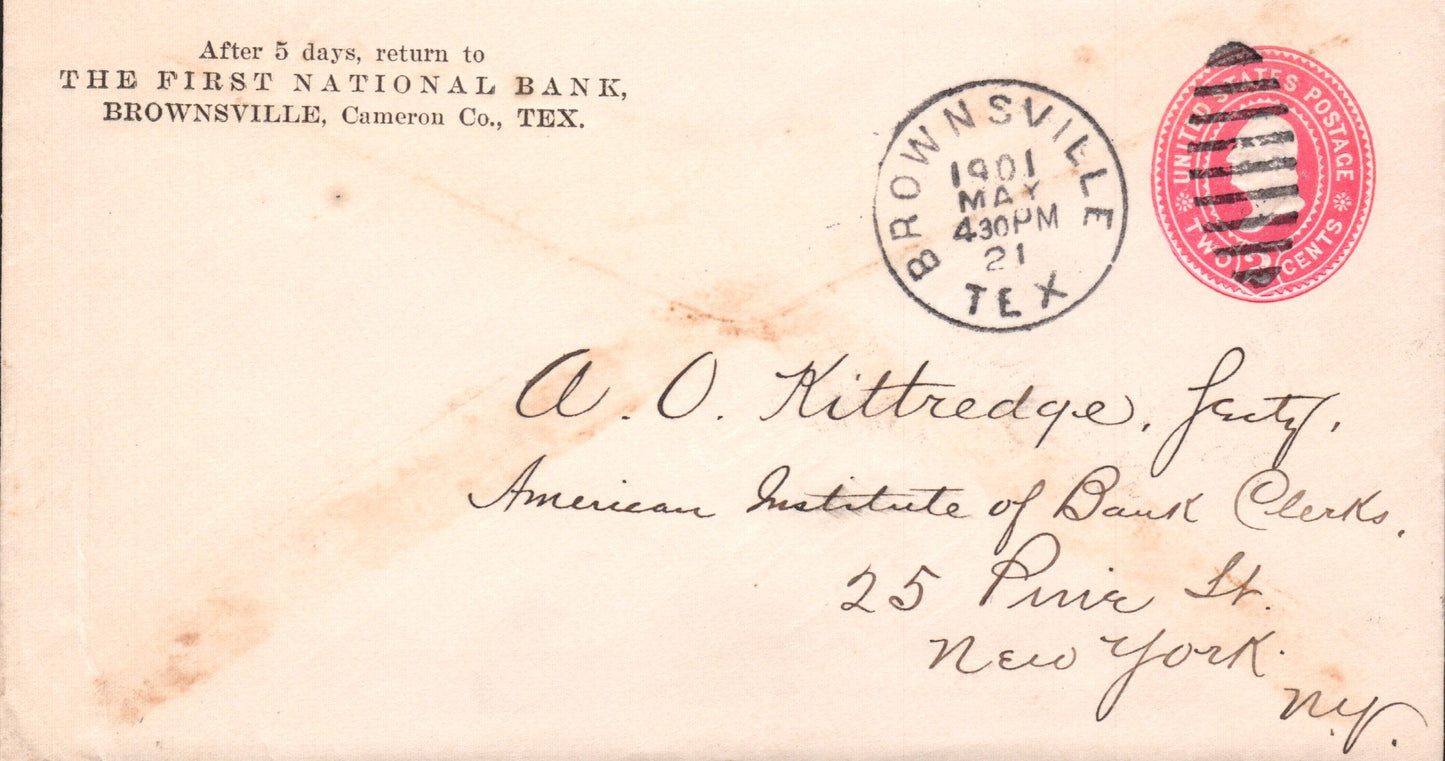 After 5 days, return to
THE FIRST NATIONAL BANK,
BROWNSVILLE, Cameron Co., TEX.
BROWNSVILLE
1901
MAY
430PM
21
TEX
UNITED STATES POSTAGE
TWO 2 CENTS
A. O. Kittredge, Secty,
American Institute of Bank Clerks,
25 Pine St.
New York.
N.Y.